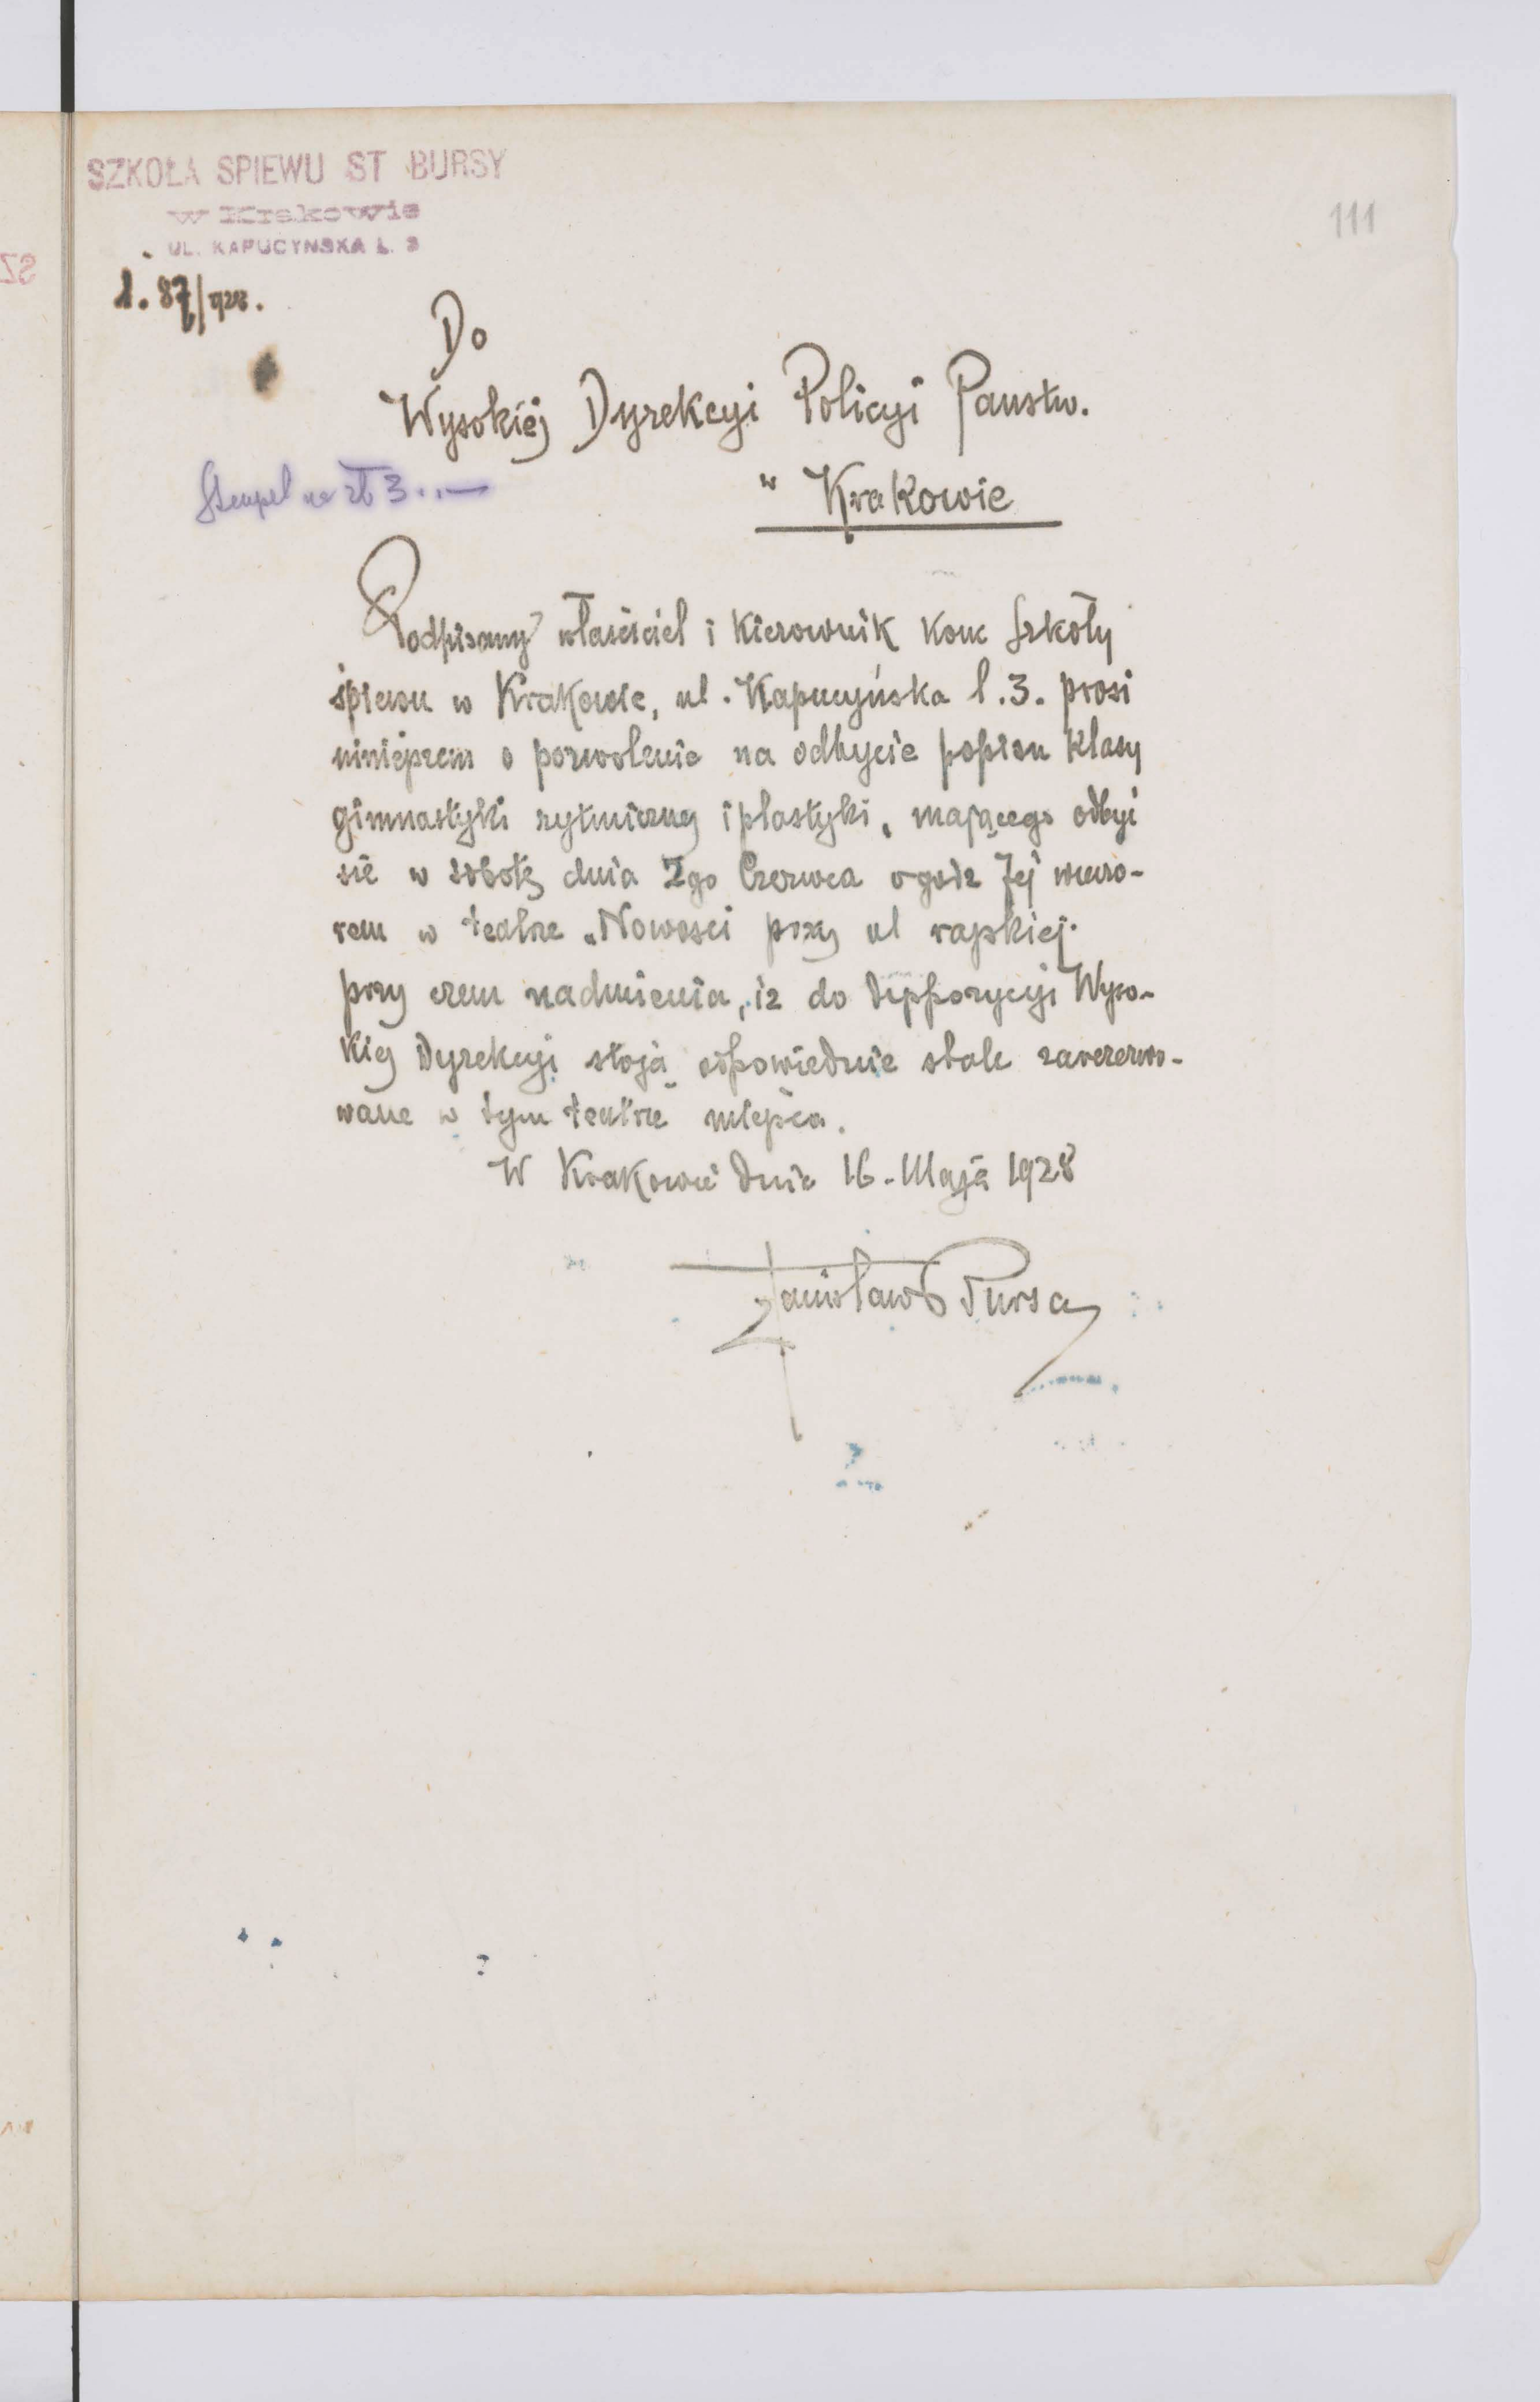 SZKOŁA SPIEWU ST BURSY
w Krakowie
UL. KAPUCYNSKA L. 3
111
l. 87/928.
Do
Wysokiej Dyrekcyi Policyi Państw.
Stempel na zł 3..—
w Krakowie
Podpisany właściciel i Kierownik Konc Szkoły
śpiewu w Krakowie, ul. Kapucyńska l.3. prosi
niniejszem o pozwolenie na odbycie popisu Klasy
gimnastyki rytmicznej i plastyki, mającego odbyć
się w sobotę dnia 2go Czerwca o godz 7ej wieczo-
rem w teatrze „Nowości przy ul rajskiej.
przy czem nadmienia, iż do dyspozycyi Wyso-
kiej Dyrekcyi stoją odpowiednie stale zarezerwo-
wane w tym teatrze miejsca.
W Krakowie dnia 16. Maja 1928
Stanisław Bursa